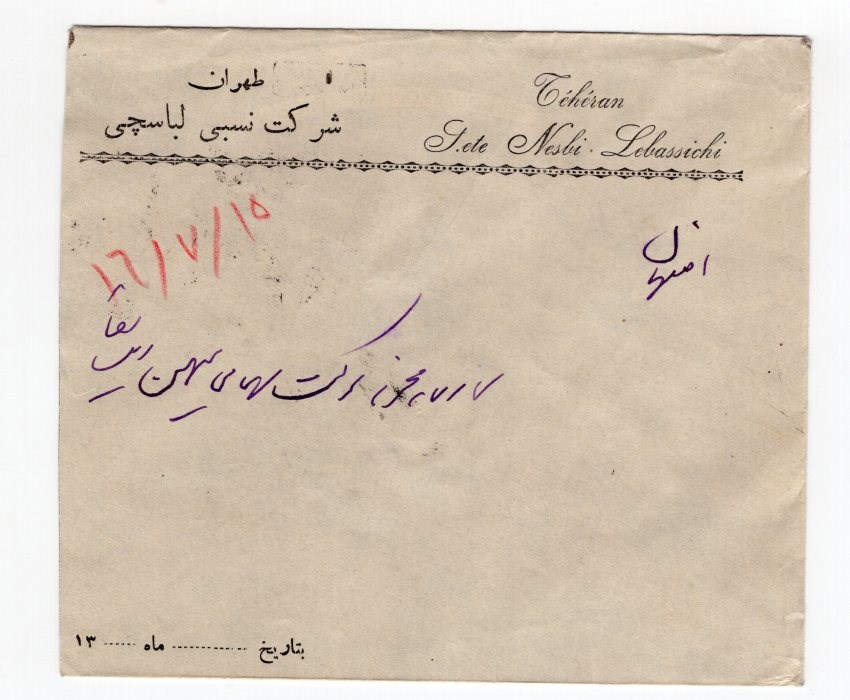 طهران
شرکت نسبی لباسچی
Téhéran
S.ete Nesbi - Lebassichi
۱۶/۷/۱۵
اصفهان
شرکت سهامی میهن
بتاریخ ---------- ماه ------ ۱۳